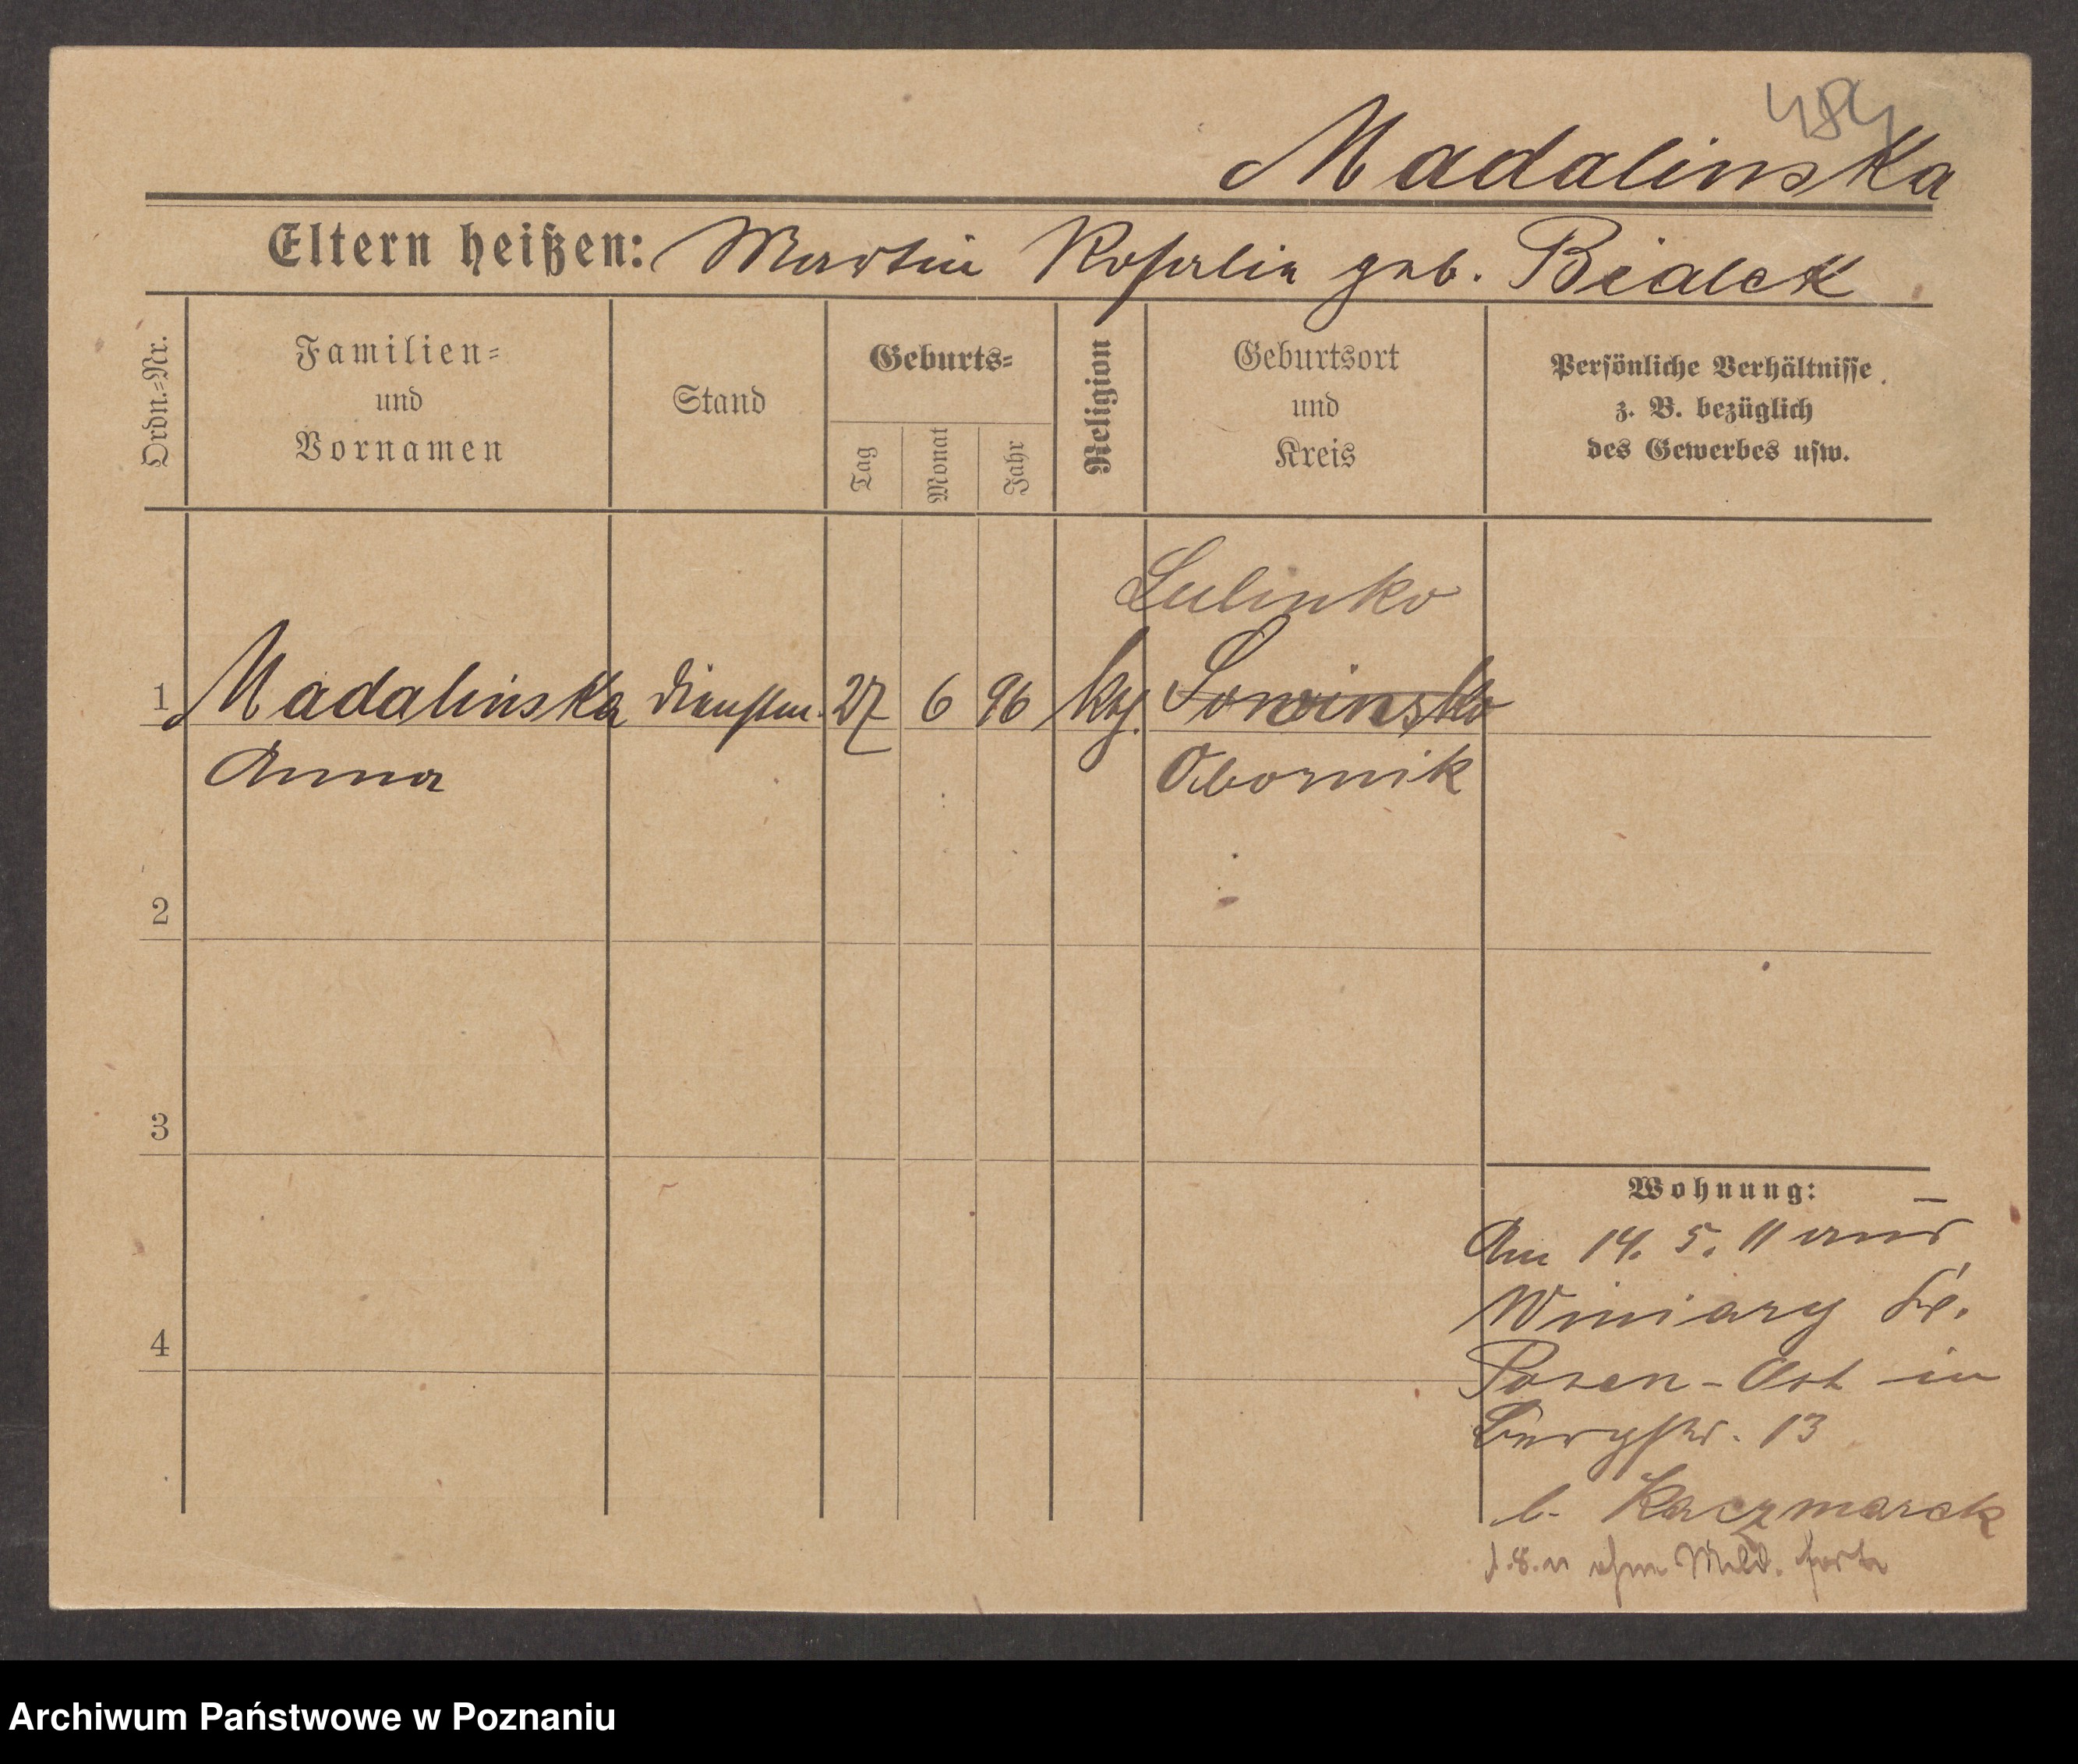 484
Madalinska
Eltern heißen: Martin Rosalia geb. Bialek
Ordn.=Nr.
Familien=
und
Vornamen
Stand
Geburts=
Tag
Monat
Jahr
Religion
Geburtsort
und
Kreis
Persönliche Verhältnisse
z. B. bezüglich
des Gewerbes usw.
Lulinko
1 Madalinska Dienstm. 27 6 96 kg. Sowinsko
Anna Obornik
2
3
4
Wohnung:
Am 14. 5. 11 aus
Winiary Kr.
Posen-Ost in
Bergstr. 13
b. Kaczmarek
ohne Meld. fort
Archiwum Państwowe w Poznaniu